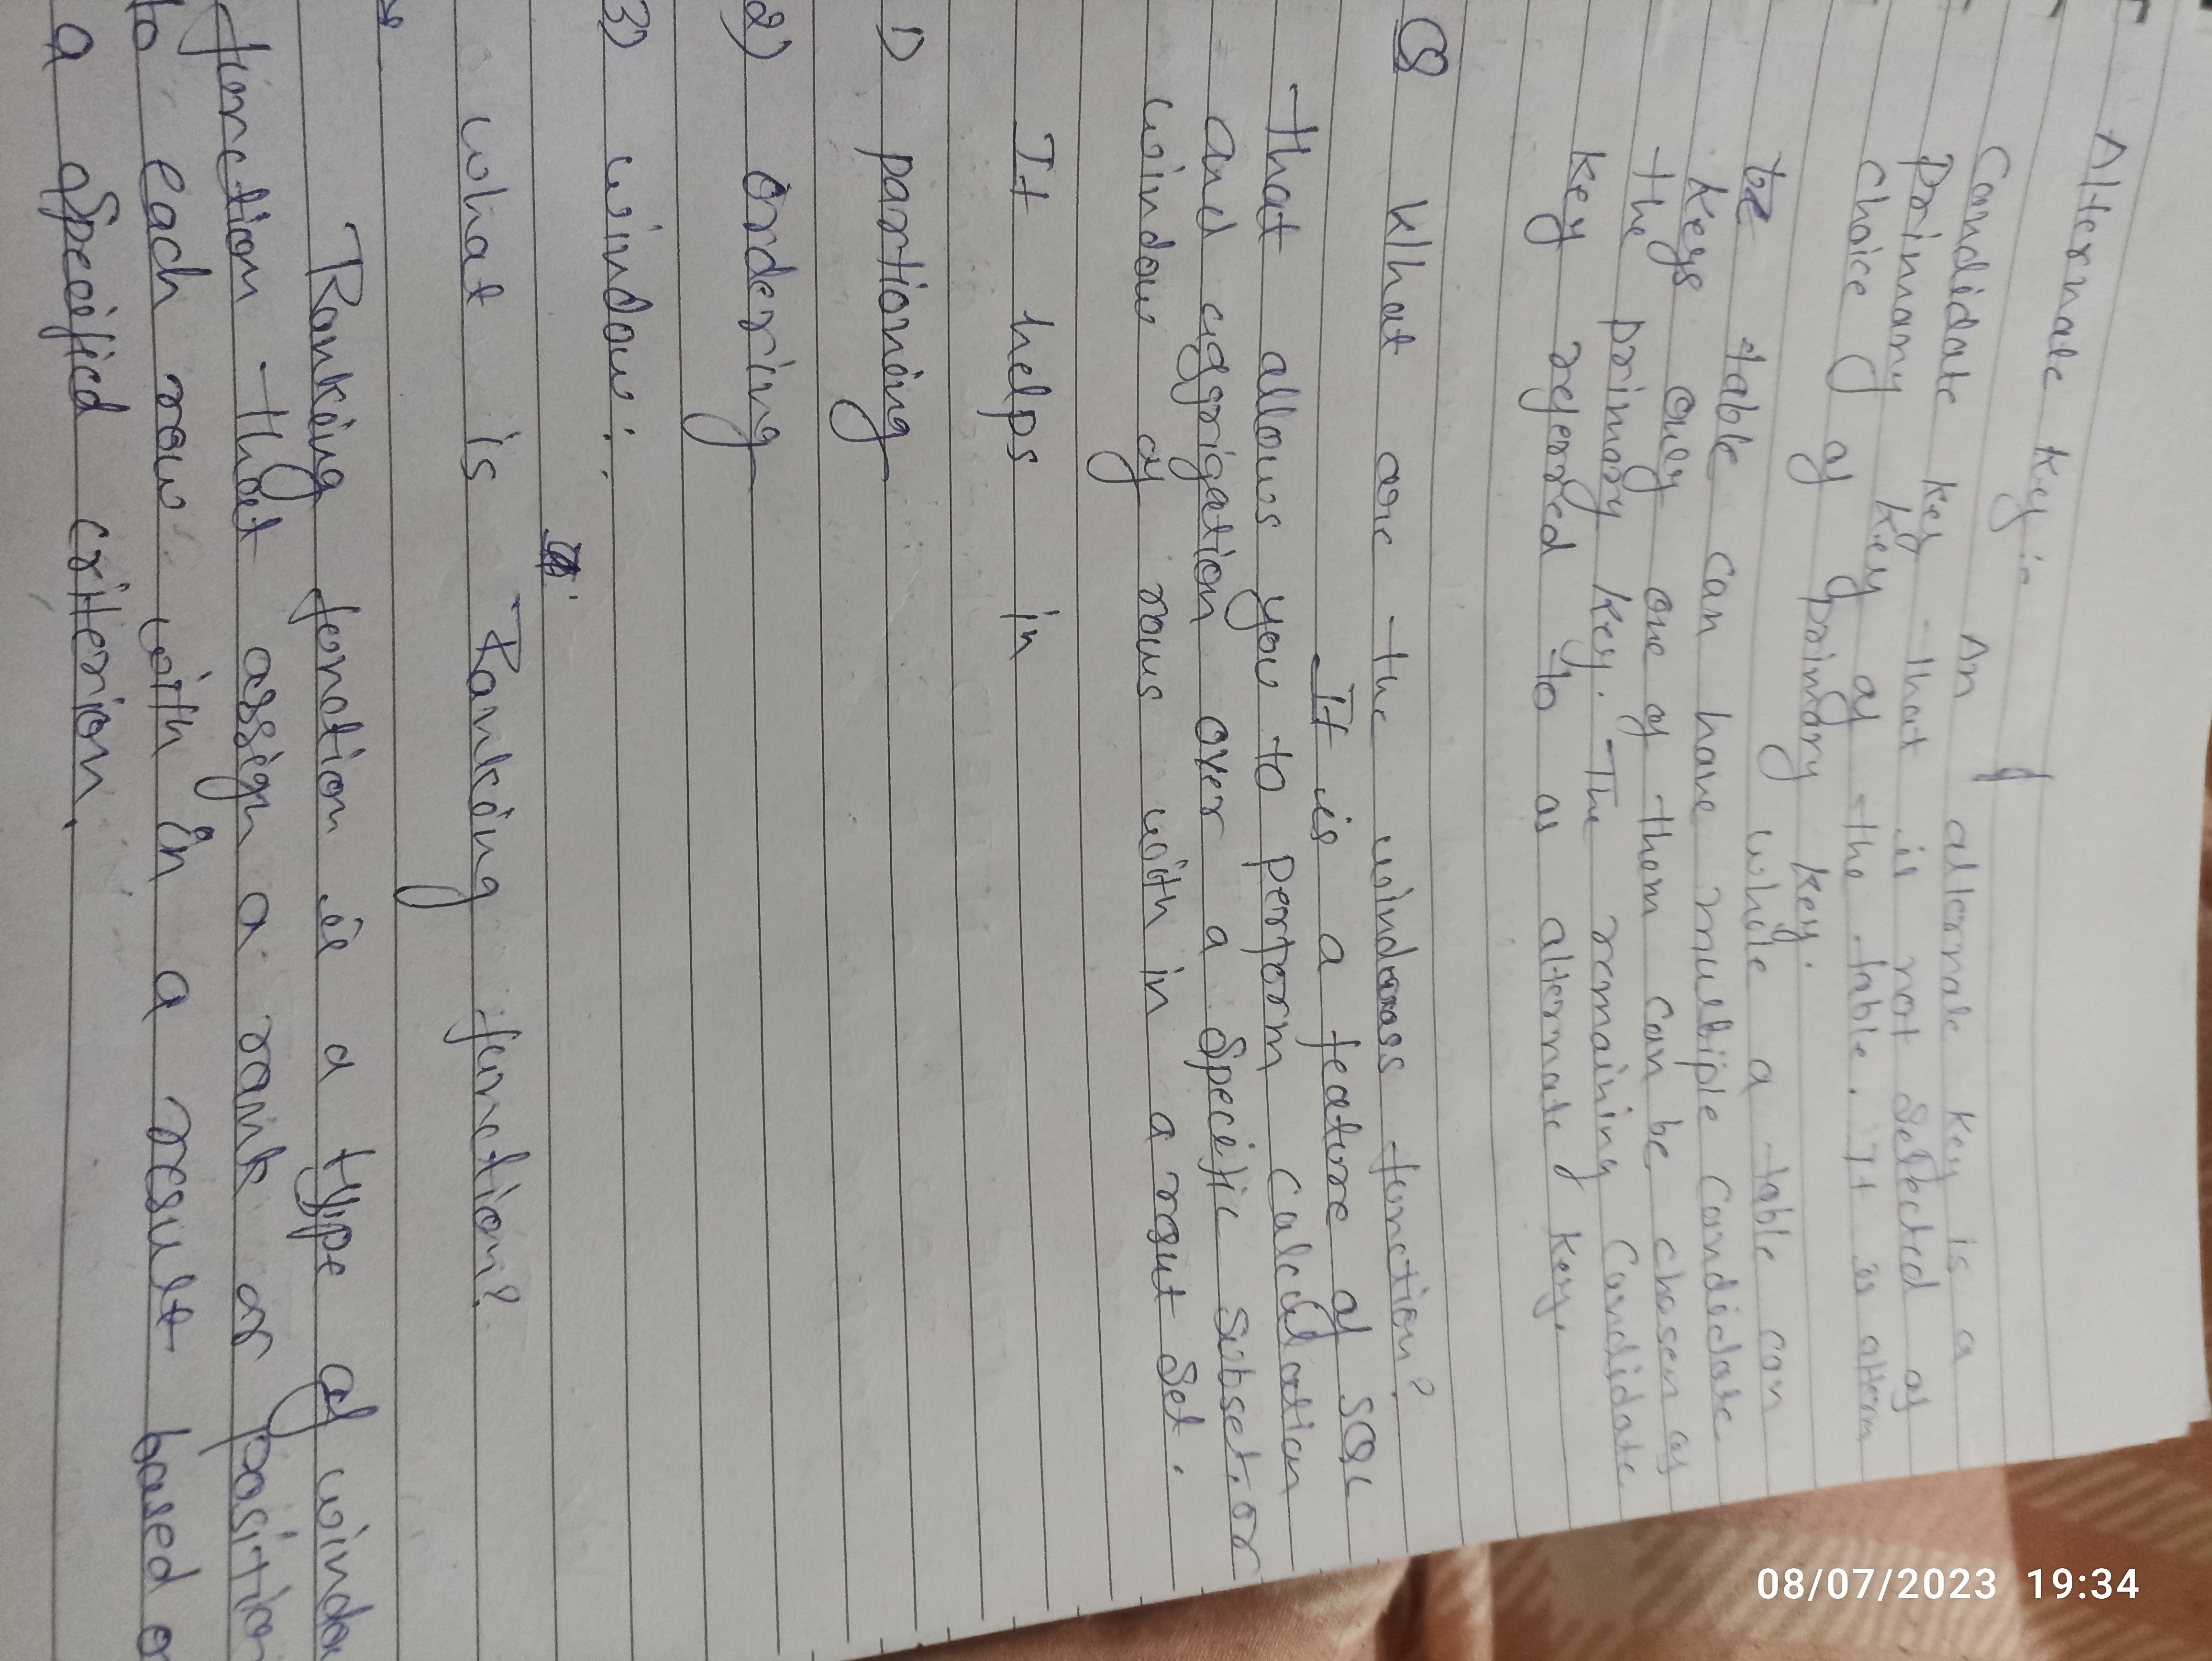 Alternate Key :-
An alternate key is a
Candidate key that is not selected as
primary key of the table. It is altern
choice of primary key.
while a table can
table can have multiple candidate
keys only one of them can be chosen as
the primary key. The remaining candidate
key referred to as alternate key.
Q What are the windows function?
It is a feature of SQL
that allows you to perform calculation
and aggrigation over a specific subset, or
window of rows with in a result set.
It helps in
1) partioning
2) ordering
3) window :.
what is Ranking function?
Ranking function is a type of windo
function that assign a rank or positio
to each row with in a result based o
a specified criterion.
08/07/2023 19:34